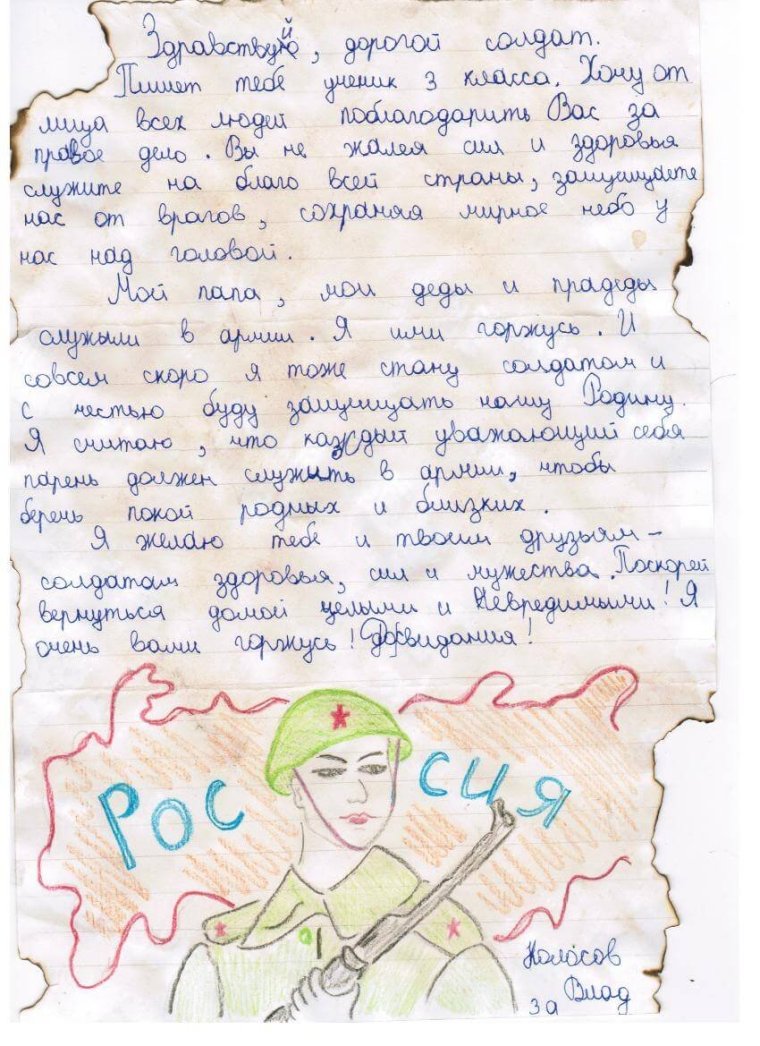 Здравствуй, дорогой солдат.
Пишет тебе ученик 3 класса. Хочу от
лица всех людей поблагодарить Вас за
правое дело. Вы не жалея сил и здоровья
служите на благо всей страны, защищаете
нас от врагов, сохраняя мирное небо у
нас над головой.
Мой папа, мои деды и прадеды
служыли в армии. Я ими горжусь. И
совсем скоро я тоже стану солдатом и
с честью буду защищать нашу Родину.
Я считаю, что каждый уважающий себя
парень должен служить в армии, чтобы
беречь покой родных и близких.
Я желаю тебе и твоим друзьям-
солдатам здоровья, сил и мужества. Поскорей
вернуться домой целыми и Невредимыми! Я
очень вами горжусь! Досвидания!
Россия
Колосов
Влад
3а